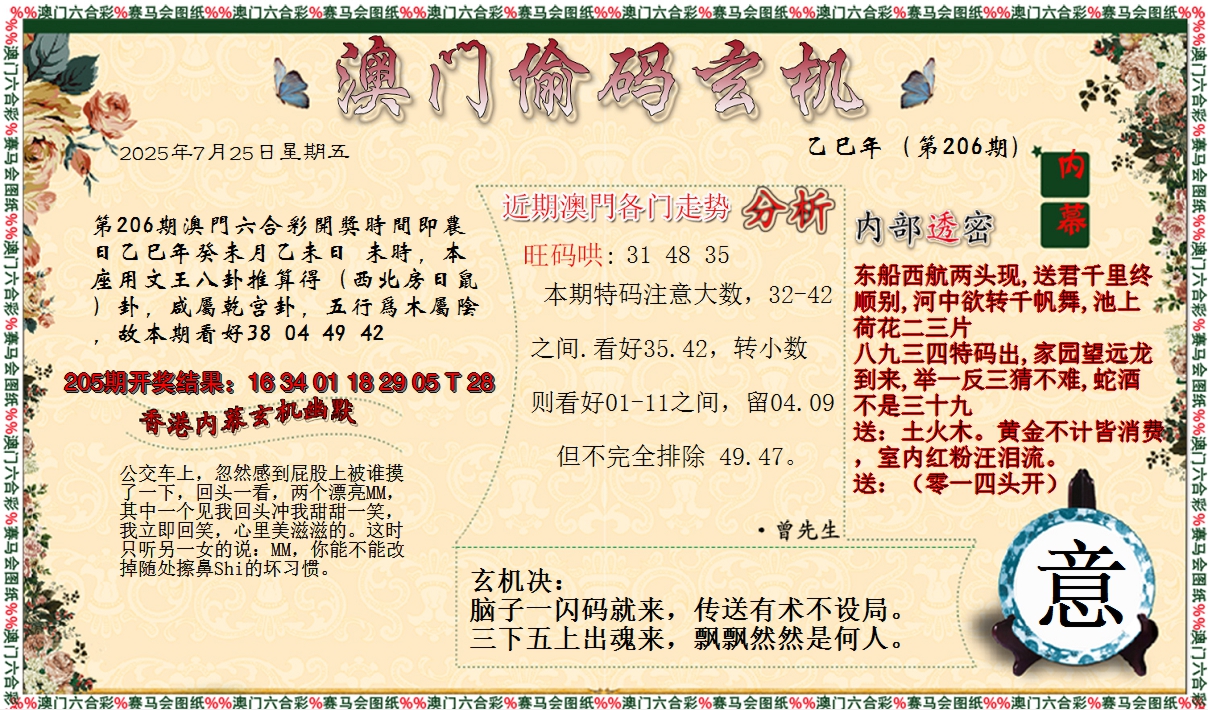 %%澳门六合彩%赛马会图纸%%澳门六合彩%赛马会图纸%%澳门六合彩%赛马会图纸%%澳门六合彩%赛马会图纸%%澳门六合彩%赛马会图纸%%澳门六合彩%赛马会图纸%%
澳门偷码玄机
2025年7月25日星期五
乙巳年（第206期）
内幕
第206期澳門六合彩開獎時間即農
日乙巳年癸未月乙未日 未時，本
座用文王八卦推算得（西北房日鼠
）卦，咸屬乾宫卦，五行爲木屬陰
，故本期看好38 04 49 42
205期开奖结果：16 34 01 18 29 05 T 28
香港内幕玄机幽默
公交车上，忽然感到屁股上被谁摸
了一下，回头一看，两个漂亮MM，
其中一个见我回头冲我甜甜一笑，
我立即回笑，心里美滋滋的。这时
只听另一女的说：MM，你能不能改
掉随处擦鼻Shi的坏习惯。
近期澳門各门走势 分析
旺码哄：31 48 35
本期特码注意大数，32-42
之间.看好35.42，转小数
则看好01-11之间，留04.09
但不完全排除 49.47。
·曾先生
内部透密
东船西航两头现,送君千里终
顺别,河中欲转千帆舞,池上
荷花二三片
八九三四特码出,家园望远龙
到来,举一反三猜不难,蛇酒
不是三十九
送：土火木。黄金不计皆消费
，室内红粉汪泪流。
送：（零一四头开）
玄机决：
脑子一闪码就来，传送有术不设局。
三下五上出魂来，飘飘然然是何人。
意
%%澳门六合彩%赛马会图纸%%澳门六合彩%赛马会图纸%%澳门六合彩%赛马会图纸%%澳门六合彩%赛马会图纸%%澳门六合彩%赛马会图纸%%澳门六合彩%赛马会图纸%%